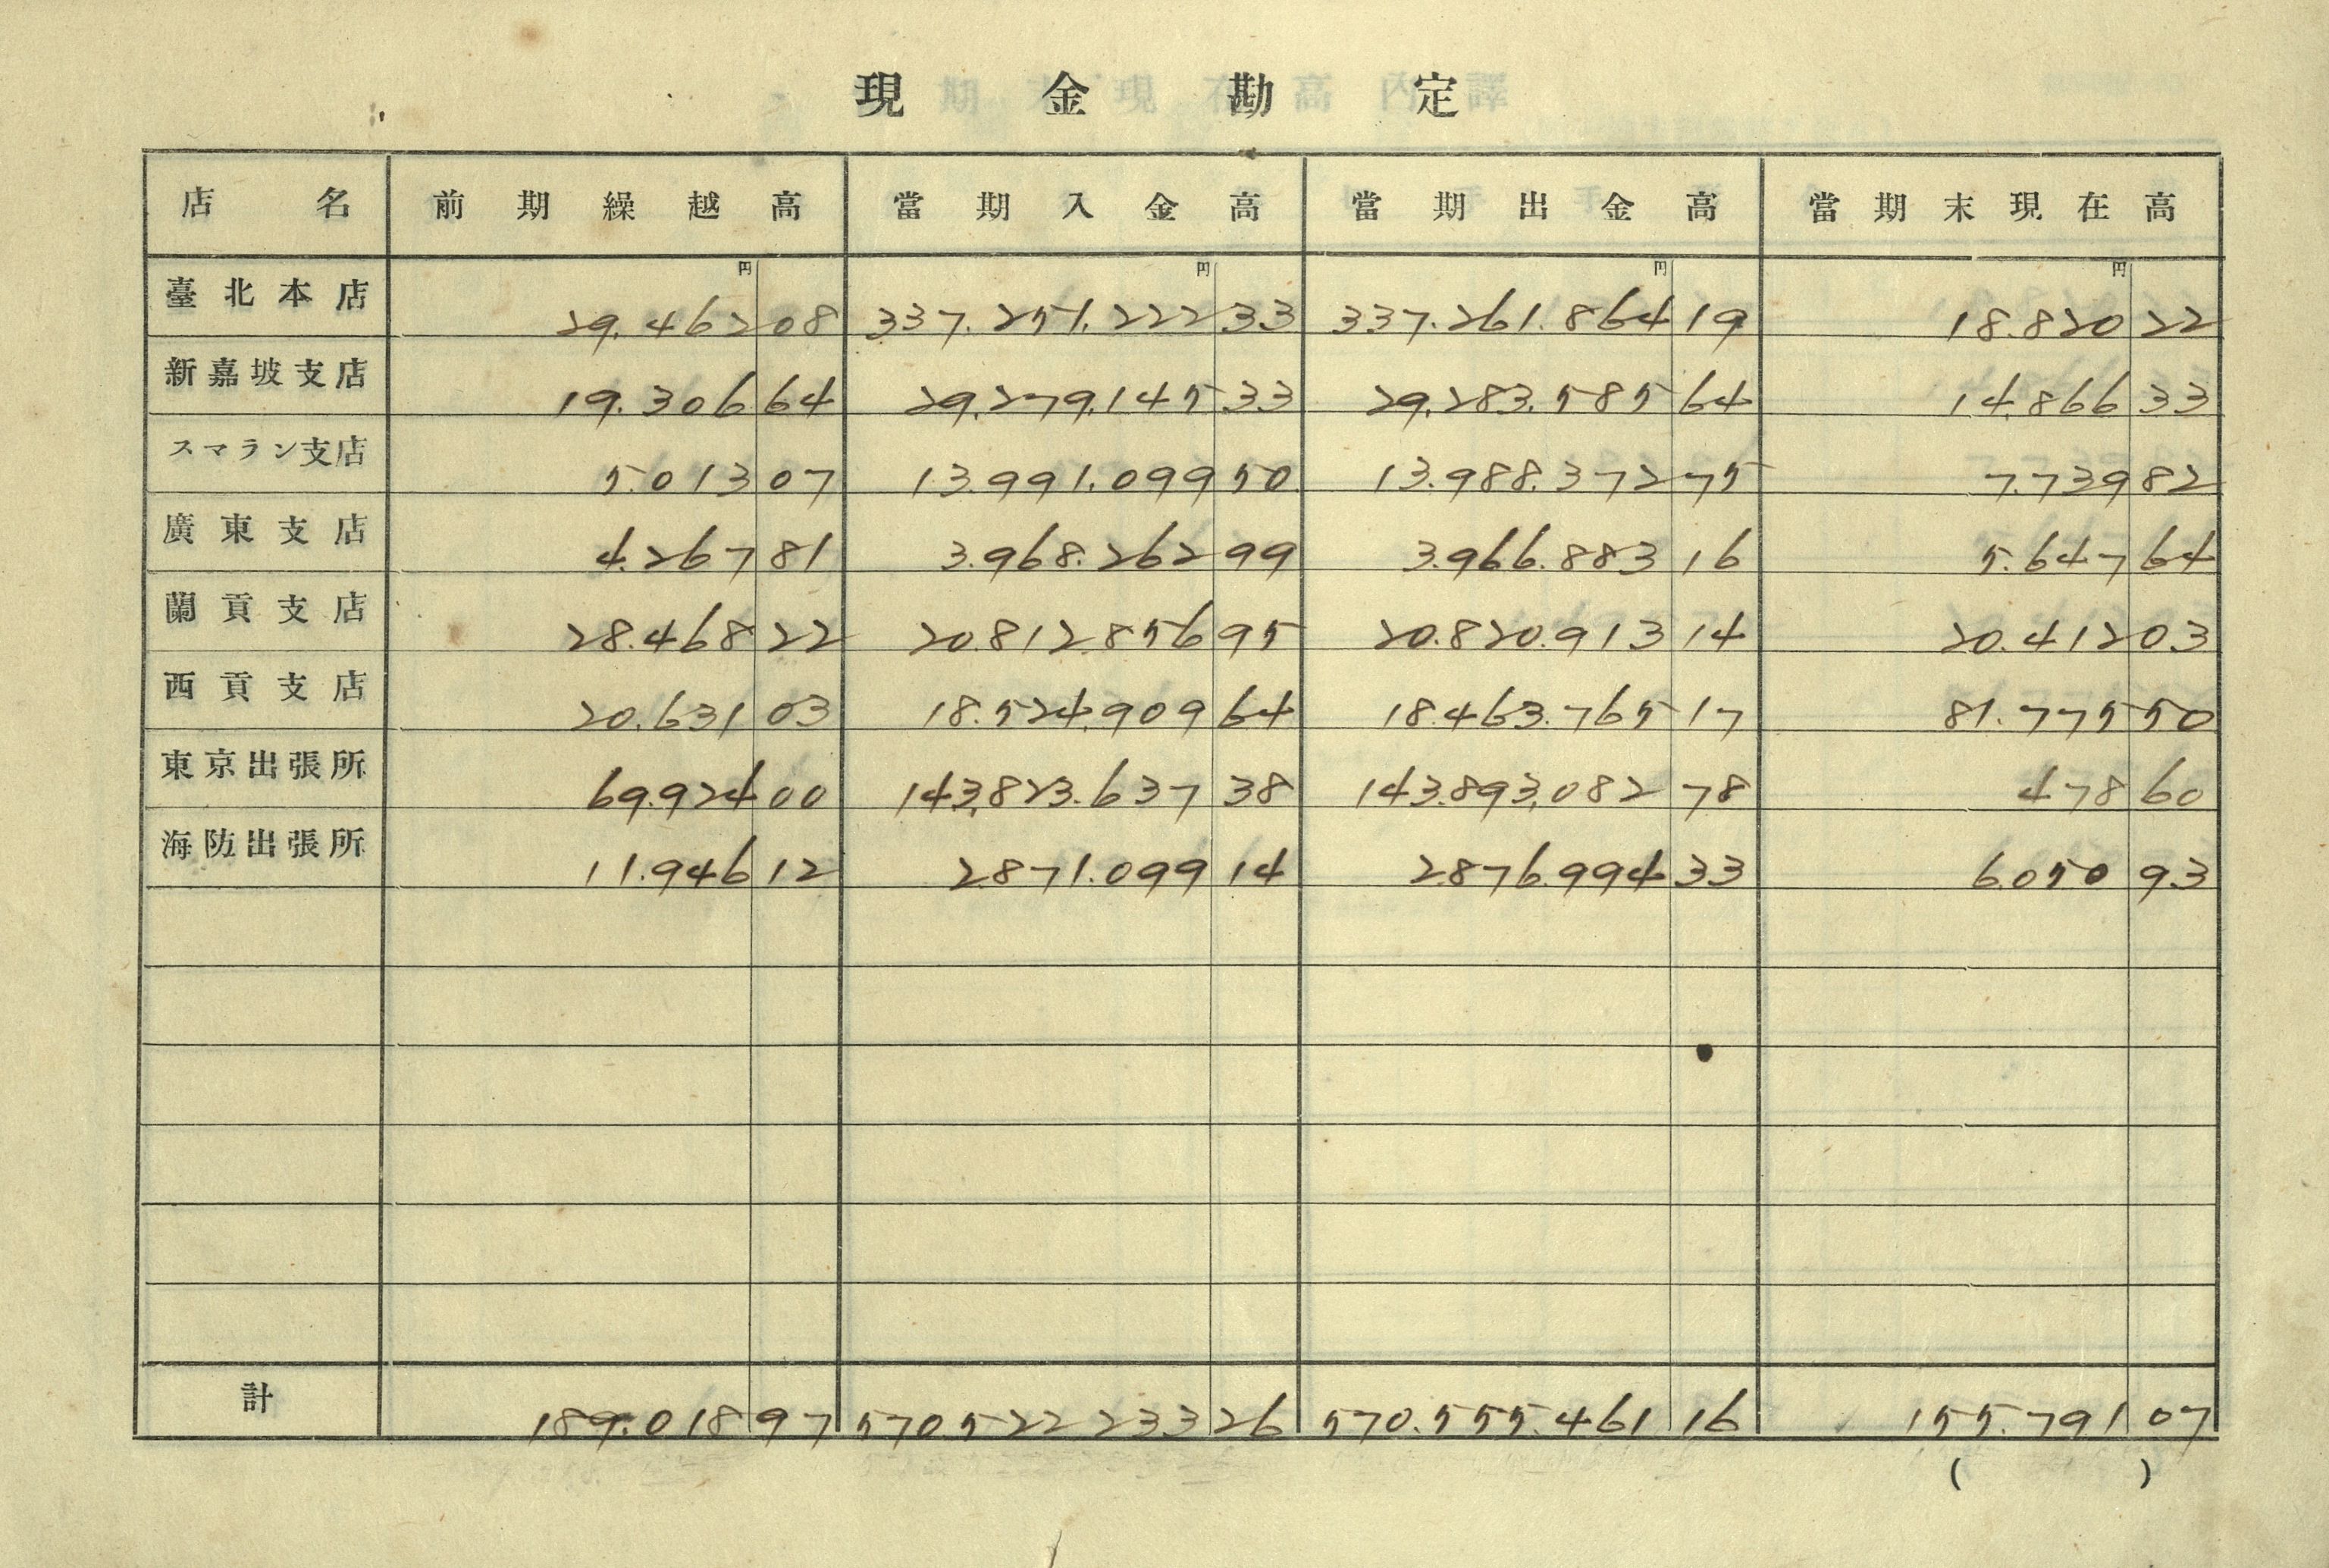 現金勘定
店名 前期繰越高 當期入金高 當期出金高 當期末現在高
円 円 円 円
臺北本店 29.462 08 337.251.222 33 337.261.864 19 18.820 22
新嘉坡支店 19.306 64 29.279.145 33 29.283.585 64 14.866 33
スマラン支店 5.013 07 13.991.099 50 13.988.372 75 7.739 82
廣東支店 4.267 81 3.968.262 99 3.966.883 16 5.647 64
蘭貢支店 28.468 22 20.812.856 95 20.820.913 14 20.412 03
西貢支店 20.631 03 18.524.909 64 18.463.765 17 81.775 50
東京出張所 69.924 00 143.823.637 38 143.893.082 78 478 60
海防出張所 11.946 12 2.871.099 14 2.876.994 33 6.050 93
計 189.018 97 570 522 233 26 570.555.461 16 155.791 07
( )